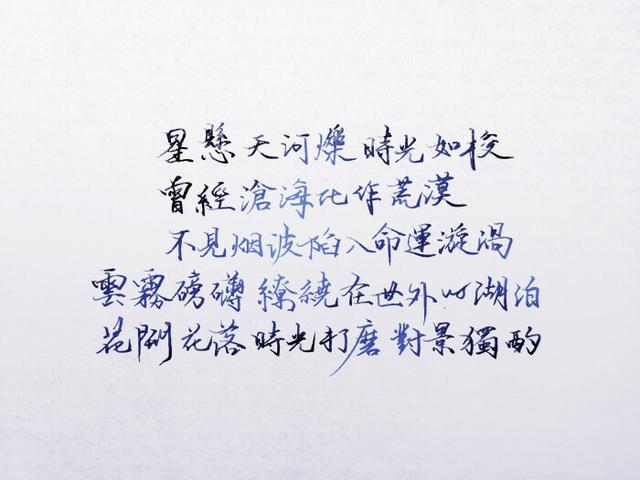 星懸天河爍時光如梭
曾經滄海化作荒漠
不見烟波陷入命運漩渦
雲霧磅礴繚繞在世外的湖泊
花開花落時光打磨對景獨酌